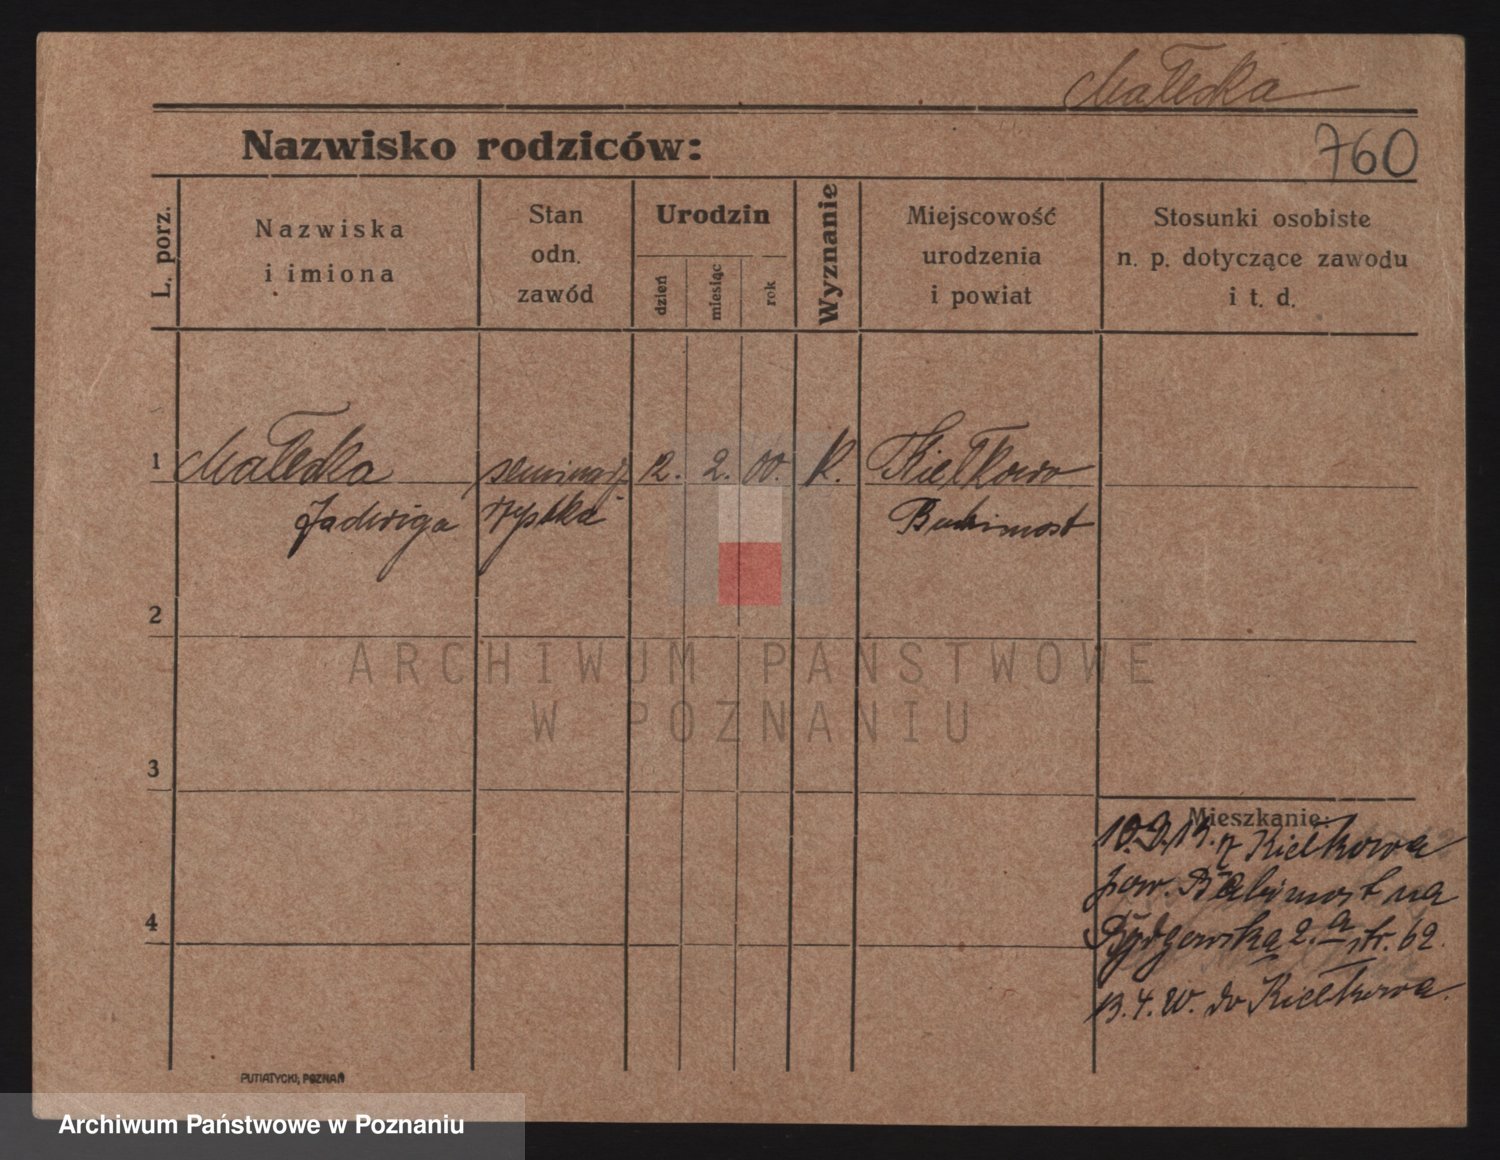 Małecka
Nazwisko rodziców:
760
L. porz.
Nazwiska
i imiona
Stan
odn.
zawód
Urodzin
dzień
miesiąc
rok
Wyznanie
Miejscowość
urodzenia
i powiat
Stosunki osobiste
n. p. dotyczące zawodu
i t. d.
1 Małecka seminarj- 12. 2. 00. K. Kiełkowo
Jadwiga rzystka Babimost
2
ARCHIWUM PAŃSTWOWE
W POZNANIU
3
Mieszkanie:
10.9.19. z Kiełkowa
pow. Babimost na
Bydgowska 2.a str. 62.
4
13.4.20. do Kiełkowa.
PUTIATYCKI, POZNAŃ
Archiwum Państwowe w Poznaniu